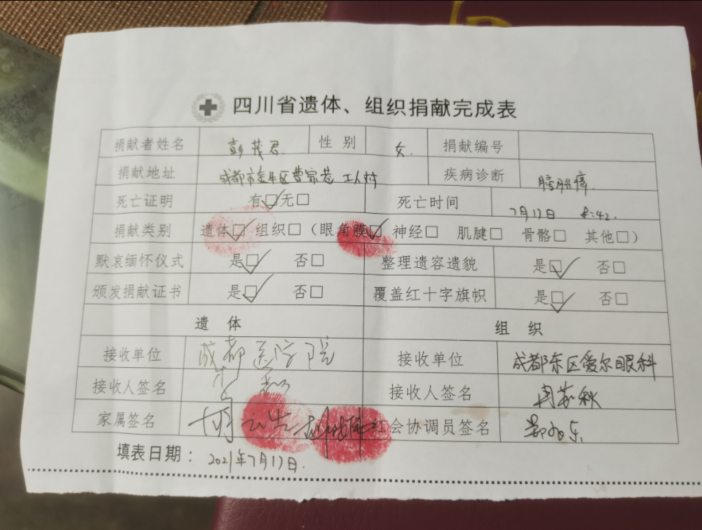 四川省遗体、组织捐献完成表
捐献者姓名 彭茂君 性别 女 捐献编号
捐献地址 成都市金牛区曹家巷工人村 疾病诊断
死亡证明 有☑无□ 死亡时间 7月17日
捐献类别 遗体☑ 组织□（眼角膜☑ 神经□ 肌腱□ 骨骼□ 其他□）
默哀缅怀仪式 是☑ 否□ 整理遗容遗貌 是☑ 否□
颁发捐献证书 是☑ 否□ 覆盖红十字旗帜 是☑ 否□
遗体 组织
接收单位 成都医学院 接收单位 成都东区爱尔眼科
接收人签名 接收人签名
家属签名 红会协调员签名
填表日期： 2021年7月17日.